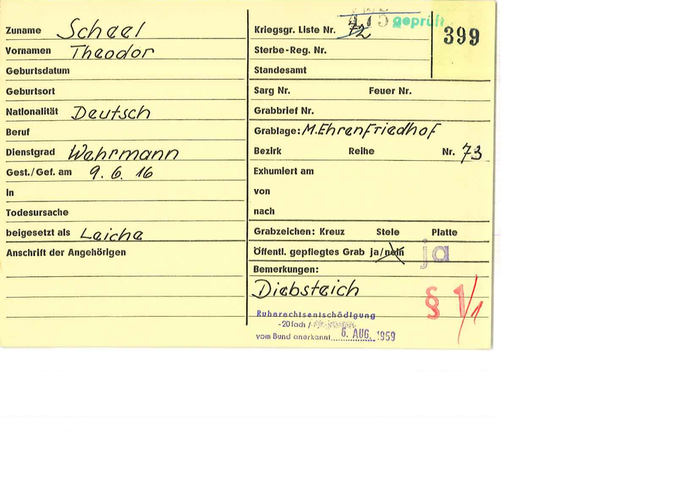 Zuname Scheel
Vornamen Theodor
Geburtsdatum
Geburtsort
Nationalität Deutsch
Beruf
Dienstgrad Wehrmann
Gest./Gef. am 9. 6. 16
in
Todesursache
beigesetzt als Leiche
Anschrift der Angehörigen
Kriegsgr. Liste Nr. 72 geprüft
399
Sterbe-Reg. Nr.
Standesamt
Sarg Nr. Feuer Nr.
Grabbrief Nr.
Grablage: M.Ehrenfriedhof
Bezirk Reihe Nr. 73
Exhumiert am
von
nach
Grabzeichen: Kreuz Stele Platte
Öffentl. gepflegtes Grab ja/nein ja
Bemerkungen:
Diebsteich
§ 1/1
Ruherechtsentschädigung
-20fach /
vom Bund anerkannt 6. AUG. 1959